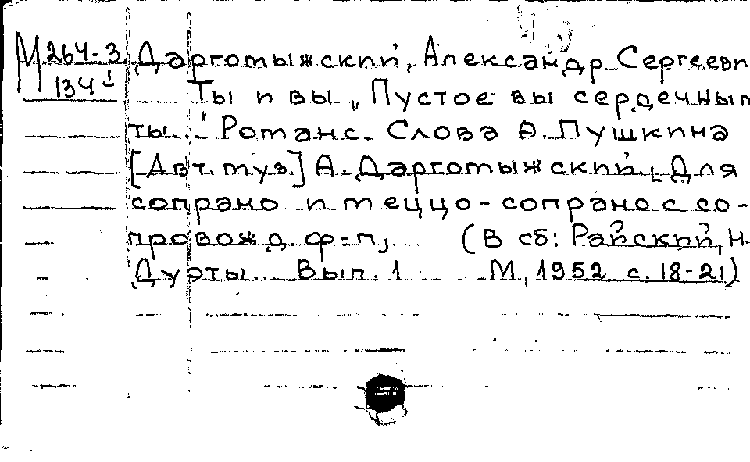 М 264-3 Даргомыжский, Александр Сергееви
134 Ты и вы „Пустое вы сердечным
ты..." Романс. Слова А. Пушкина
[Авт. муз.] А. Даргомыжский, Для
сопрано и меццо-сопрано с со-
провожд. ф-п, (В сб: Райский, Н.
Дуэты... Вып. 1 М, 1952 с. 18-21)